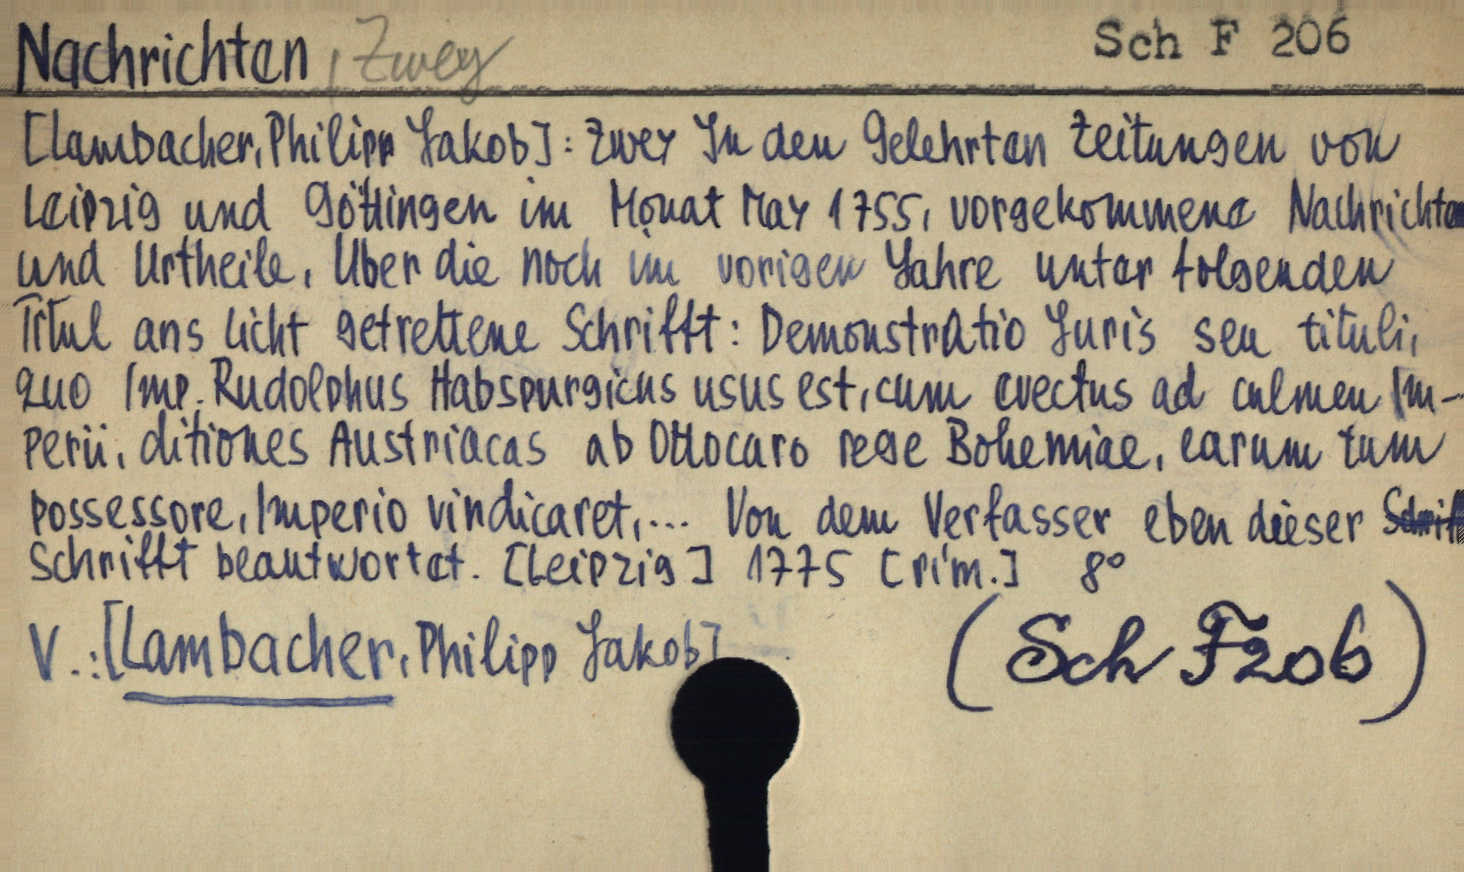 Nachrichten, Zwey
Sch F 206
[Lambacher, Philipp Jakob]: Zwey In den Gelehrten Zeitungen von
Leipzig und Göttingen im Monat May 1755, vorgekommene Nachrichten
und Urtheile, Uber die noch im vorigen Jahre unter folgenden
Titul ans Licht getrettene Schrifft: Demonstratio Juris seu tituli,
quo Imp. Rudolphus Habspurgicus usus est, cum evectus ad culmen Im-
perii, ditiones Austriacas ab Ottocaro rege Bohemiae, earum tum
possessore, Imperio vindicaret,... Von dem Verfasser eben dieser Schrift
Schrifft beantwortet. [Leipzig] 1775 [rim.] 8°
V.: [Lambacher, Philipp Jakob]
(Sch F 206)